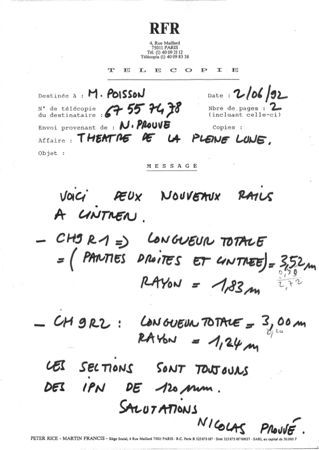 RFR
4, Rue Maillard
75011 PARIS
Tél. (1) 40 09 21 12
Télécopie (1) 40 09 83 38
TELECOPIE
Destinée à : M. POISSON
Date : 2/06/92
N° de télécopie
du destinataire : 67 55 74 78
Nbre de pages : 2
(incluant celle-ci)
Envoi provenant de : N. PROUVE
Copies :
Affaire : THEATRE DE LA PLEINE LUNE.
Objet :
MESSAGE
VOICI DEUX NOUVEAUX RAILS
A CINTRER.
– CH9R1 => LONGUEUR TOTALE
= (PARTIES DROITES ET CINTREE) = 3,52 m
2,72
RAYON = 1,83 m
– CH9R2 : LONGUEUR TOTALE = 3,00 m
RAYON = 1,24 m
LES SECTIONS SONT TOUJOURS
DES IPN DE 120 mm.
SALUTATIONS
NICOLAS PROUVÉ.
PETER RICE - MARTIN FRANCIS - Siège Social, 4 Rue Maillard 75011 PARIS - R.C. Paris B